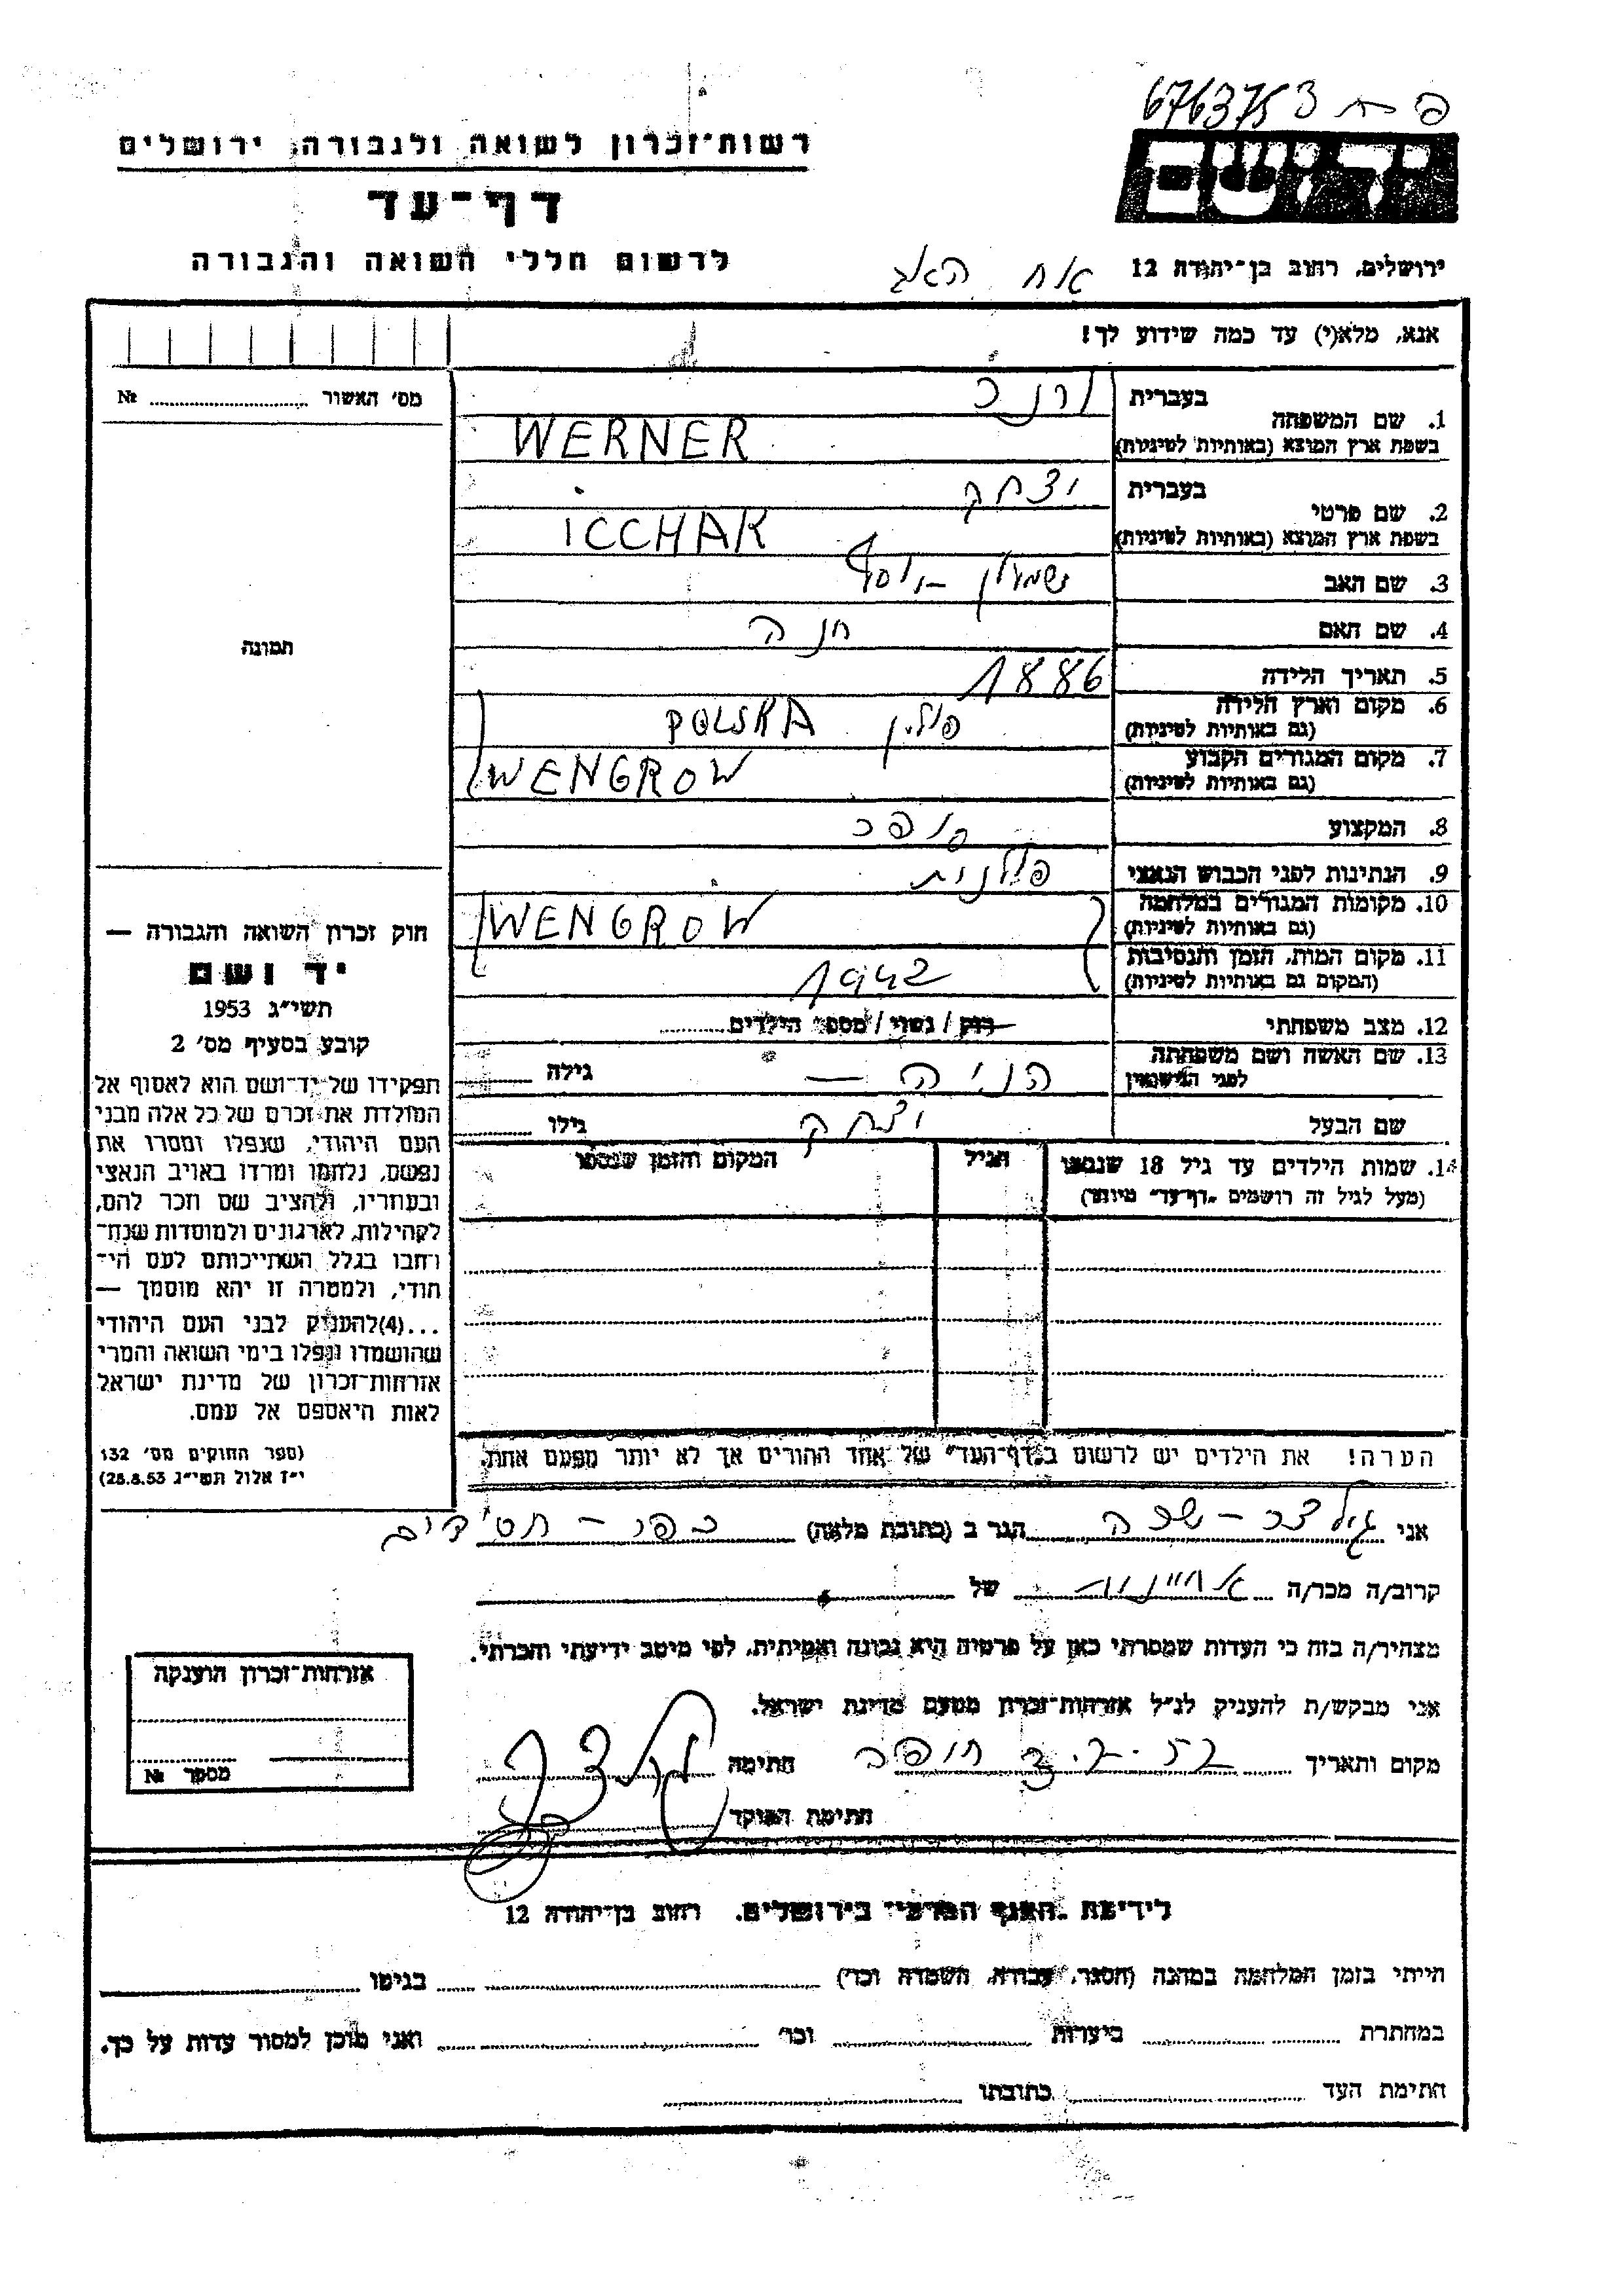 6763753
רשות־זכרון לשואה ולגבורה, ירושלים
יד ושם
דף-עד
לרשום חללי השואה והגבורה
ירושלים, רחוב בן־יהודה 12
אח האב
אנא, מלא(י) עד כמה שידוע לך!
מס' האשור № 
1. שם המשפחה
בעברית ורנר
בשפת ארץ המוצא (באותיות לטיניות) WERNER
2. שם פרטי
בעברית יצחק
בשפת ארץ המוצא (באותיות לטיניות) ICCHAK
3. שם האב שמעון - יוסף
4. שם האם חנה
5. תאריך הלידה 1886
6. מקום וארץ הלידה פולין POLSKA
(גם באותיות לטיניות)
7. מקום המגורים הקבוע WENGROW
(גם באותיות לטיניות)
8. המקצוע סופר
9. הנתינות לפני הכבוש הנאצי פולנית
10. מקומות המגורים במלחמה WENGROW
(גם באותיות לטיניות)
11. מקום המות, הזמן והנסיבות 1942
(המקום גם באותיות לטיניות)
12. מצב משפחתי רוק / נשוי / מספר הילדים
13. שם האשה ושם משפחתה הניה — גילה
לפני הנישואין
שם הבעל יצחק גילו
14. שמות הילדים עד גיל 18 שנספו הגיל המקום והזמן שנספו
(מעל לגיל זה רושמים "דף-עד" מיוחד)
הערה! את הילדים יש לרשום ב"דף-העד" של אחד ההורים אך לא יותר מפעם אחת.
תמונה
חוק זכרון השואה והגבורה —
יד ושם
תשי"ג 1953
קובע בסעיף מס' 2
תפקידו של יד־ושם הוא לאסוף אל
המולדת את זכרם של כל אלה מבני
העם היהודי, שנפלו ומסרו את
נפשם, נלחמו ומרדו באויב הנאצי
ובעוזריו, ולהציב שם וזכר להם,
לקהילות, לארגונים ולמוסדות שנח־
רבו בגלל השתייכותם לעם הי־
הודי, ולמטרה זו יהא מוסמך —
...(4)להעניק לבני העם היהודי
שהושמדו ונפלו בימי השואה והמרי
אזרחות־זכרון של מדינת ישראל
לאות היאספם אל עמם.
(ספר החוקים מס' 132
י"ז אלול תשי"ג 28.8.53)
אני גולצר - שרה הגר ב (כתובת מלאה) כפר - חסידים
קרוב/ה מכר/ה אחיינות של
מצהיר/ה בזה כי העדות שמסרתי כאן על פרטיה היא נכונה ואמיתית, לפי מיטב ידיעתי והכרתי.
אני מבקש/ת להעניק לנ"ל אזרחות־זכרון מטעם מדינת ישראל.
מקום ותאריך חתימה
חתימת הפוקד
אזרחות־זכרון הוענקה
מספר №
לידיעת "האגף המדעי" בירושלים, רחוב בן־יהודה 12
הייתי בזמן המלחמה במחנה (הסגר, עבודה, השמדה וכד') בגיטו
במחתרת ביערות וכד' ואני מוכן למסור עדות על כך.
חתימת העד כתובתו